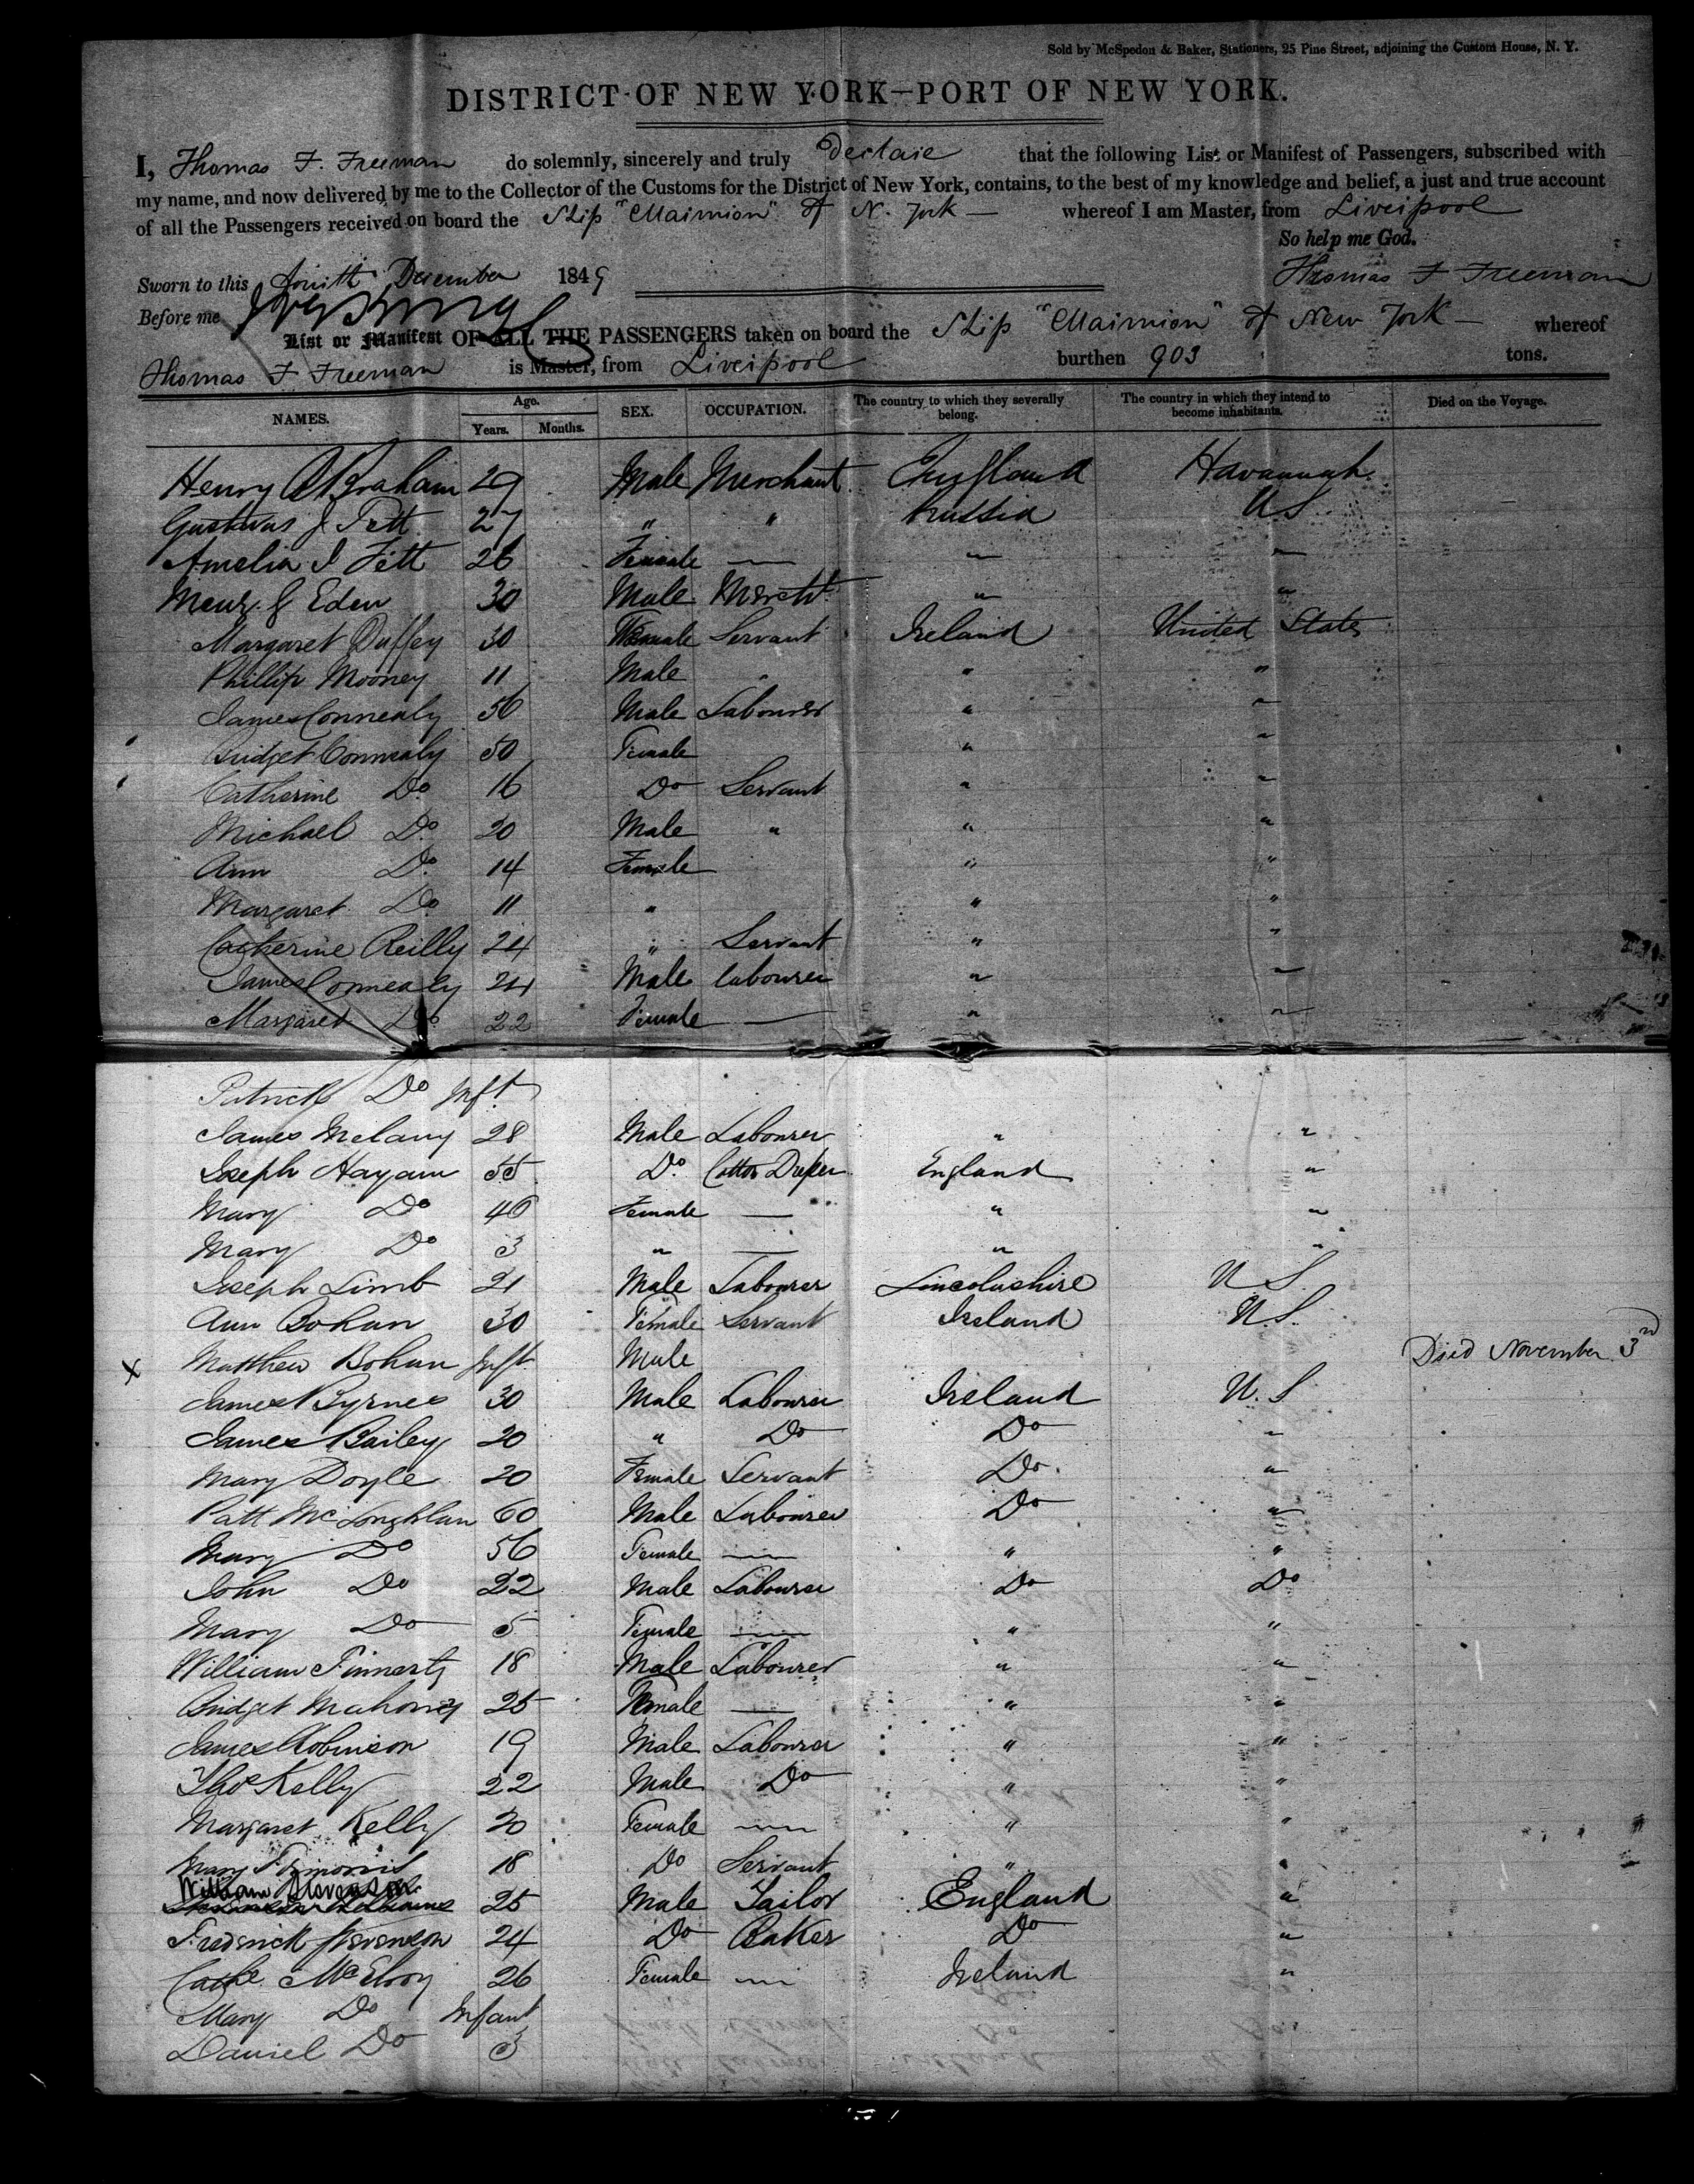 Sold by McSpedon & Baker, Stationers, 25 Pine Street, adjoining the Custom House, N. Y.
DISTRICT OF NEW YORK—PORT OF NEW YORK.
I, Thomas F. Freeman do solemnly, sincerely and truly Declare that the following List or Manifest of Passengers, subscribed with
my name, and now delivered by me to the Collector of the Customs for the District of New York, contains, to the best of my knowledge and belief, a just and true account
of all the Passengers received on board the Ship "Marmion" of N. York — whereof I am Master, from Liverpool
So help me God.
Sworn to this fourth December 1849 Thomas F Freeman
Before me
List or Manifest OF ALL THE PASSENGERS taken on board the Ship "Marmion" of New York — whereof
Thomas F Freeman is Master, from Liverpool burthen 903 tons.
NAMES. Age. Years. Months. SEX. OCCUPATION. The country to which they severally belong. The country in which they intend to become inhabitants. Died on the Voyage.
Henry Abraham 29 Male Merchant England Havannah
Gustavus J Tett 27 " " Prussia U S
Amelia I Fett 26 Female — " "
J Eden 30 Male Mercht " "
Margaret Duffey 30 Female Servant Ireland United States
Phillip Mooney 11 Male " " "
James Connealy 50 Male Labourer " "
Bridget Connealy 50 Female " "
Catherine Do 16 Do Servant " "
Michael Do 20 Male " " "
Ann Do 14 Female " "
Margaret Do 11 " " "
Catherine Reilly 24 " Servant " "
James Connealy 24 Male labourer " "
Margaret Do 22 Female — " "
Patrick Do Inft
James Melany 28 Male Labourer " "
Joseph Hayam 55 Do Cotton England "
Mary Do 40 Female — " "
Mary Do 3 " — " "
Joseph Limb 21 Male Labourer Lincolnshire U S
Ann Bohan 30 Female Servant Ireland U S.
x Matthew Bohan Inft Male Died November 3rd
James Byrnes 30 Male Labourer Ireland U. S
James Bailey 20 " Do Do "
Mary Doyle 20 Female Servant Do "
Patt McLoughlan 60 Male Labourer Do "
Mary Do 56 Female — " "
John Do 22 Male Labourer Do Do
Mary Do 5 Female — " "
William Finnerty 18 Male Labourer " "
Bridget Mahoney 25 Female — " "
James Robinson 19 Male Labourer " "
Thos Kelly 22 Male Do " "
Margaret Kelly 20 Female — " "
Mary 18 Do Servant " "
William Stevenson 25 Male Tailor England "
Frederick Stevenson 24 Do Baker Do "
Cathe McElroy 26 Female — Ireland "
Mary Do Infant
Daniel Do 3